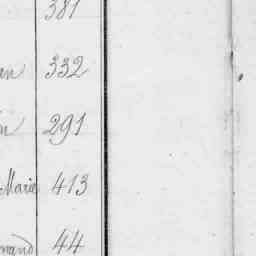 381
an 332
n 291
Marie 413
mand 44